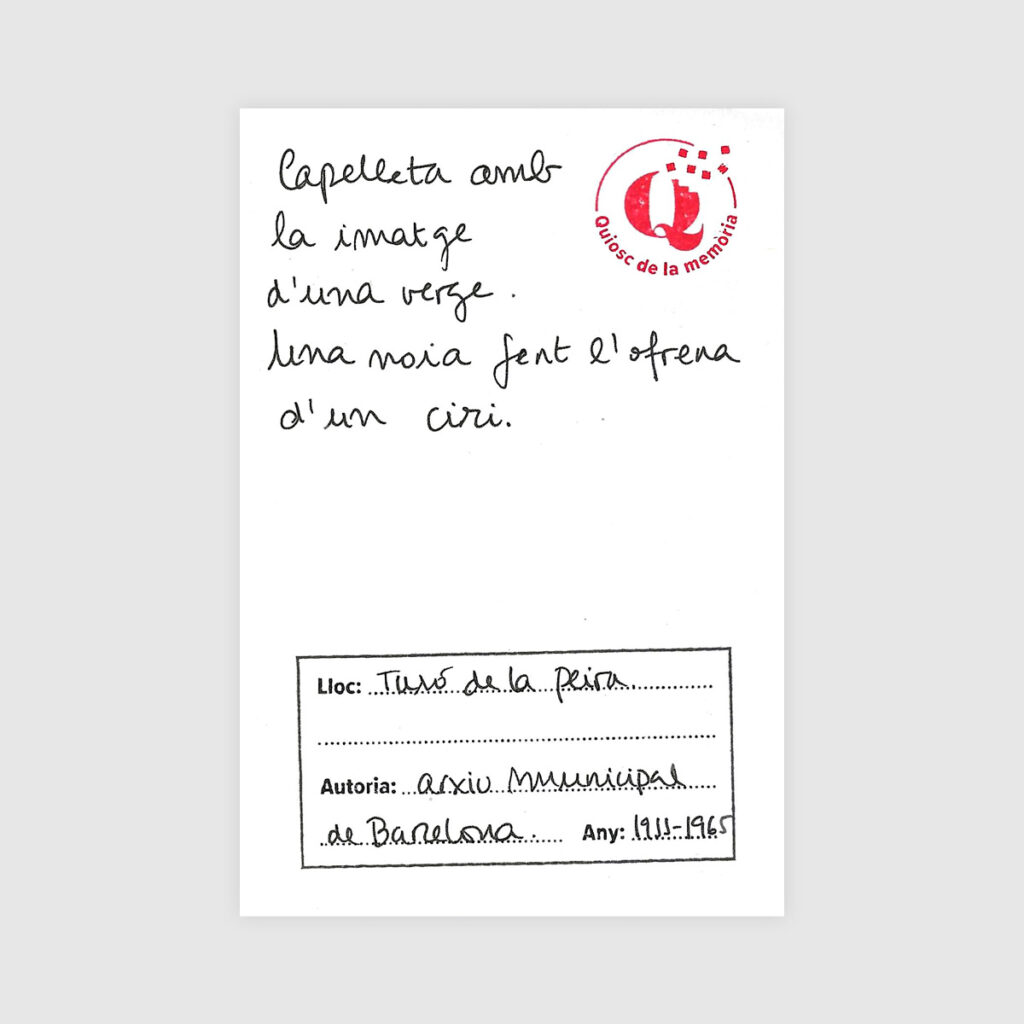 Capelleta amb
la imatge
d'una verge.
Una noia fent l'ofrena
d'un ciri.
Q
Quiosc de la memòria
Lloc: Turó de la Peira
Autoria: arxiu Municipal
de Barcelona. Any: 1911-1965